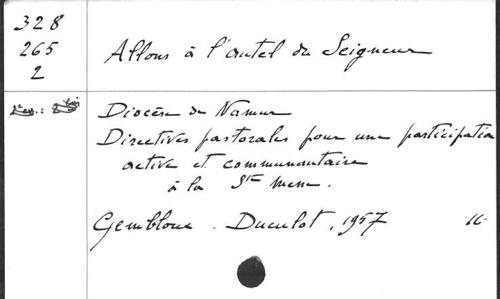 328
265
2
Allons à l'autel du Seigneur
Diocèse de Namur
Directives pastorales pour une participation
active et communautaire
à la Ste messe.
Gembloux. Duculot, 1957